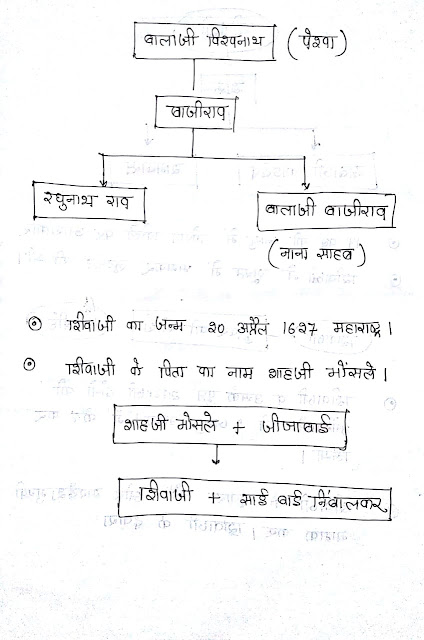 बालाजी विश्वनाथ (पेशवा)
बाजीराव
रघुनाथ राव
बालाजी बाजीराव
(नाना साहब)
शिवाजी का जन्म 20 अप्रैल 1627 महाराष्ट्र।
शिवाजी के पिता का नाम शाहजी भोंसले।
शाहजी भोसले + जीजाबाई
शिवाजी + साई बाई निंबालकर